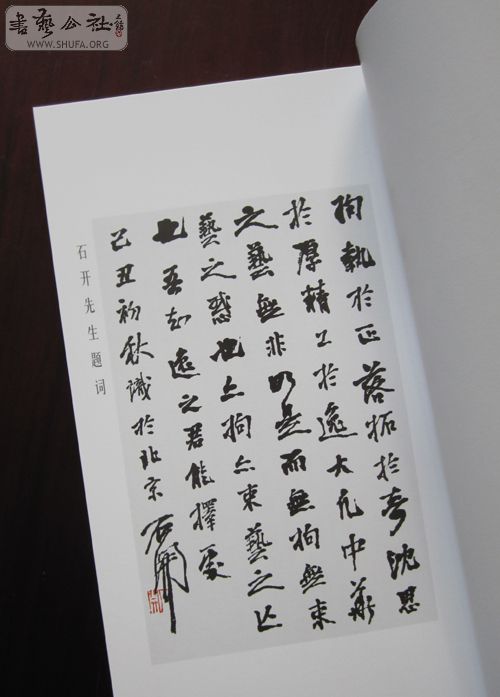 書藝公社
WWW.SHUFA.ORG
拘執於正落拓於奇沈思
於厚精工於逸大凡中華
之藝無非如是而無拘無束
藝之惑也亦拘亦束藝之止
也吾知遠之君能擇處
己丑初秋識於北京石開
石开先生题词